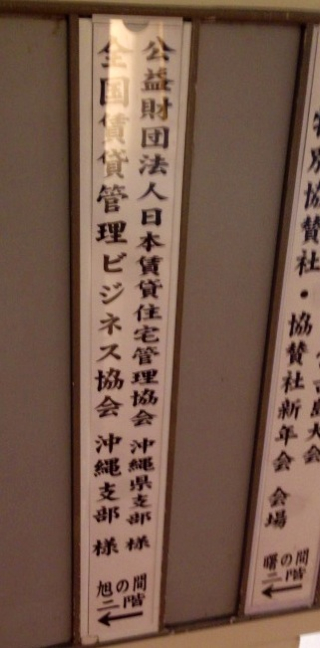 公益財団法人日本賃貸住宅管理協会 沖縄県支部 様
全国賃貸管理ビジネス協会 沖縄支部 様
旭の間
二階
←
特別協賛社・協賛社新年会 会場
曙の間
二階
←